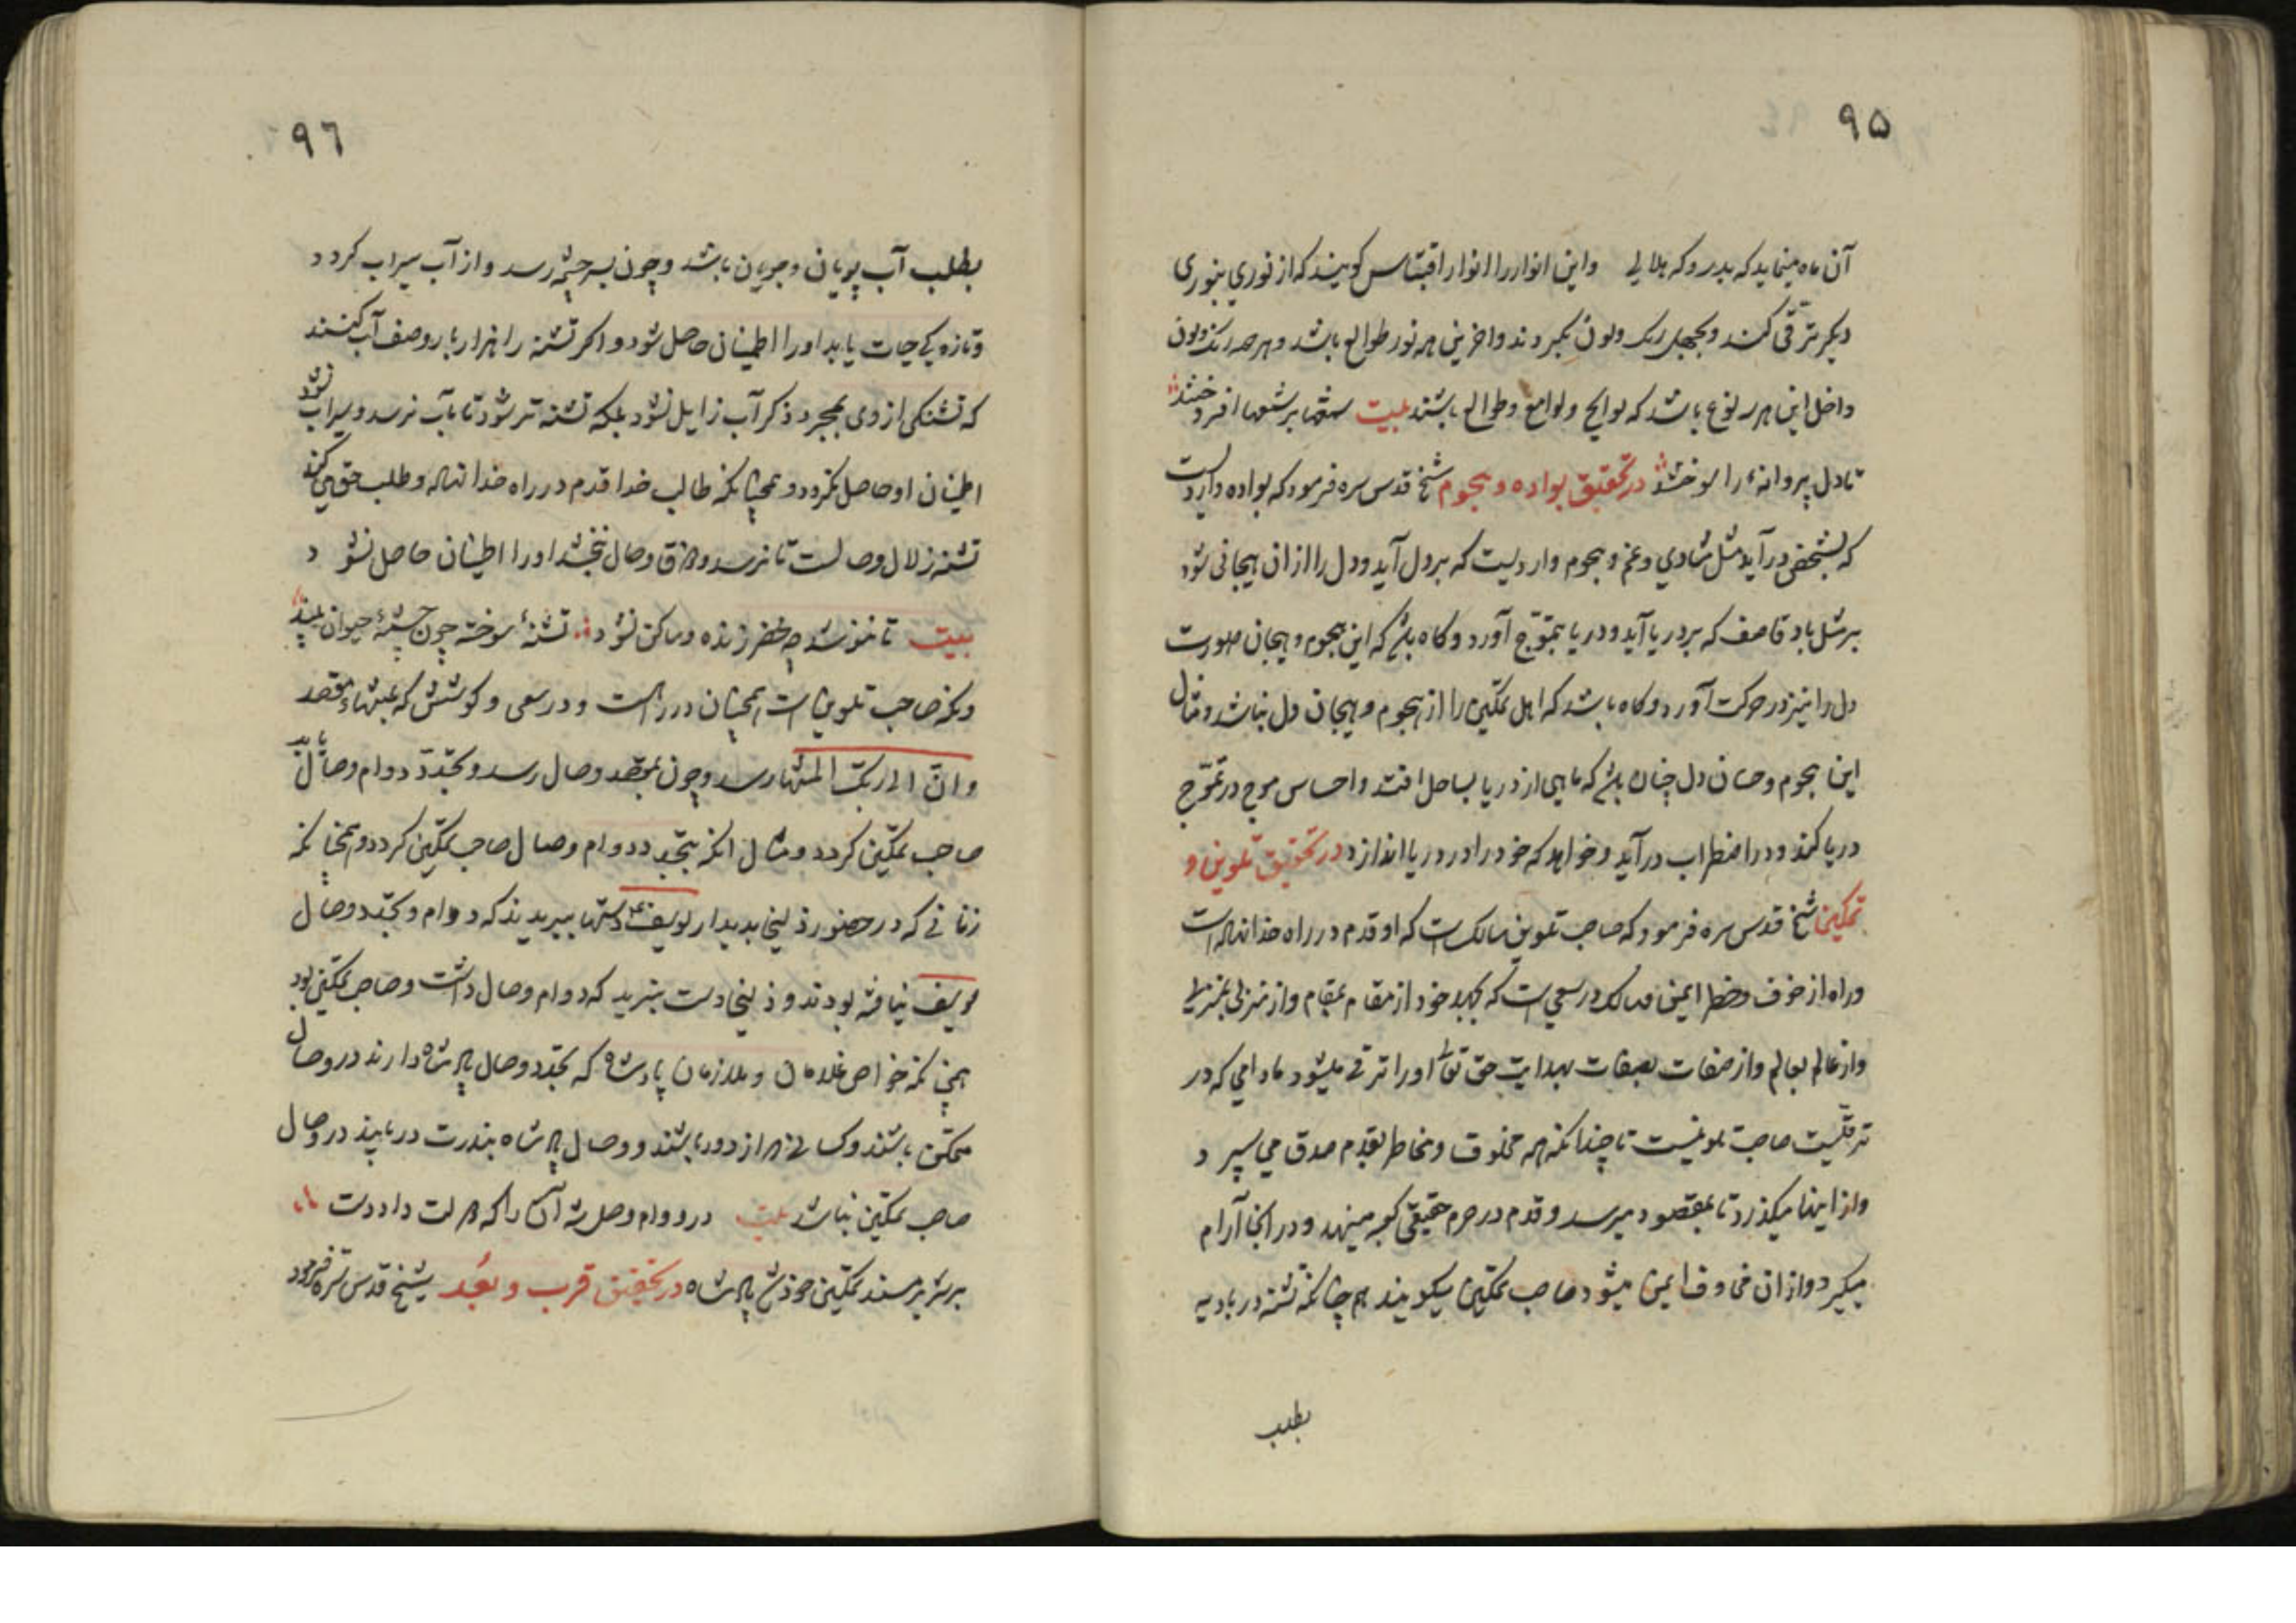 ۹۵
آن ماه مینماید که بدر و که هلالی واین انوار را انوار اقتباس کویند که از نوری بنوری
دیکر ترقی کند و بجهل رنک ولون بکیردند واخرین هر نور طوالع باشد وهرچه رنک ولون
داخل این هر سه نوع باشد که لوایح ولوامع وطوالع باشند بیت شمعها بر شمعها افروختند
تا دل پروانهٔ را سوختند در تحقیق بواده و هجوم شیخ قدس سره فرمود که بواده واردیست
که بشخصی درآید مثل شادی وغم و هجوم واردیست که بر دل آید ودل را ازان هیجانی شود
بر مثل باد قاصف که بر دریا آید ودریا بتموّج آورد وکاه باشد که این هجوم و هیجان صورت
دل را نیز در حرکت آورد وکاه باشد که اهل تمکین را از هجوم وهیجان دل نباشد ومثال
این هجوم و دل چنان باشد که ماهی از دریا بساحل افتد واحساس موج در تموّج
دریا کند ودر اضطراب درآید وخواهد که خود را در دریا اندازد در تحقیق تلوین و
تمکین شیخ قدس سره فرمود که صاحب تلوین سالک است که او قدم در راه خدا نهاده است
وراه از خوف وخطر ایمن سالک در سعی است که بجهد خود از مقام بمقام واز منزلی بمنزلی
واز عالم بعالم واز صفات بصفات بهدایت حق تعالی اورا ترقی میشود مادامی که در
ترقیست صاحب تلوینست تا چندانکه همه مخوف ومخاطر بقدم صدق می سپرد
واز اینها میکذرد تا بمقصود میرسد وقدم در حرم حقیقی کعبه مینهد ودر انجا آرام
میکیرد وازان مخاوف ایمن میشود صاحب تمکین میکویند هم چنانکه تشنه در بادیه
بطلب
۹٦
بطلب آب پویان وجویان باشد وچون بسرچشمه رسد واز آب سیراب کردد
وتازه یکی حیات یابد اورا اطمینان حاصل شود واکر تشنه را هزار بار وصف آب کنند
که تشنکی از وی بمجرد ذکر آب زایل نشود بلکه تشنه تر شود تا بآب نرسد وسیراب نشود
اطمینان او حاصل نکردد وهمچنانکه طالب خدا قدم در راه خدا نهاده وطلب حق می کند
تشنه زلال وصالست تا نرسد ومذاق وصال نچشد اورا اطمینان حاصل نشود
بیت تا ننوشد چه خضر زنده وساکن نشود تشنهٔ سوخته چون چشمهٔ حیوان بیند
ونکه صاحب تلوین است همچنان در راهست ودر سعی وکوشش که بمنتهاء مقصد
وانّ الی ربک المنتهی رسد وچون بمقصد وصال رسد وتجدّد دوام وصال یابد
صاحب تمکین کردد ومثال انکه بتجدد دوام وصال صاحب تمکین کردد همچنانکه
زنانی که در حضور زلیخا بدیدار یوسف ع دستها ببریدند که دوام وتجدد وصال
یوسف نیافته بودند وزلیخا دست نبرید که دوام وصال داشت وصاحب تمکین بود
همچنانکه خواص غلامان وملازمان پادشاه که تجدد وصال پادشاه دارند در وصال
متمکن باشند وکسانی که از دور باشند ووصال پادشاه بندرت دریابند در وصال
صاحب تمکین نباشد بیت در دوام وصل شه آنرا که دست
بر سریر مسند تمکین خود شد پادشاه در تحقیق قرب و بُعد شیخ قدس سره فرمود